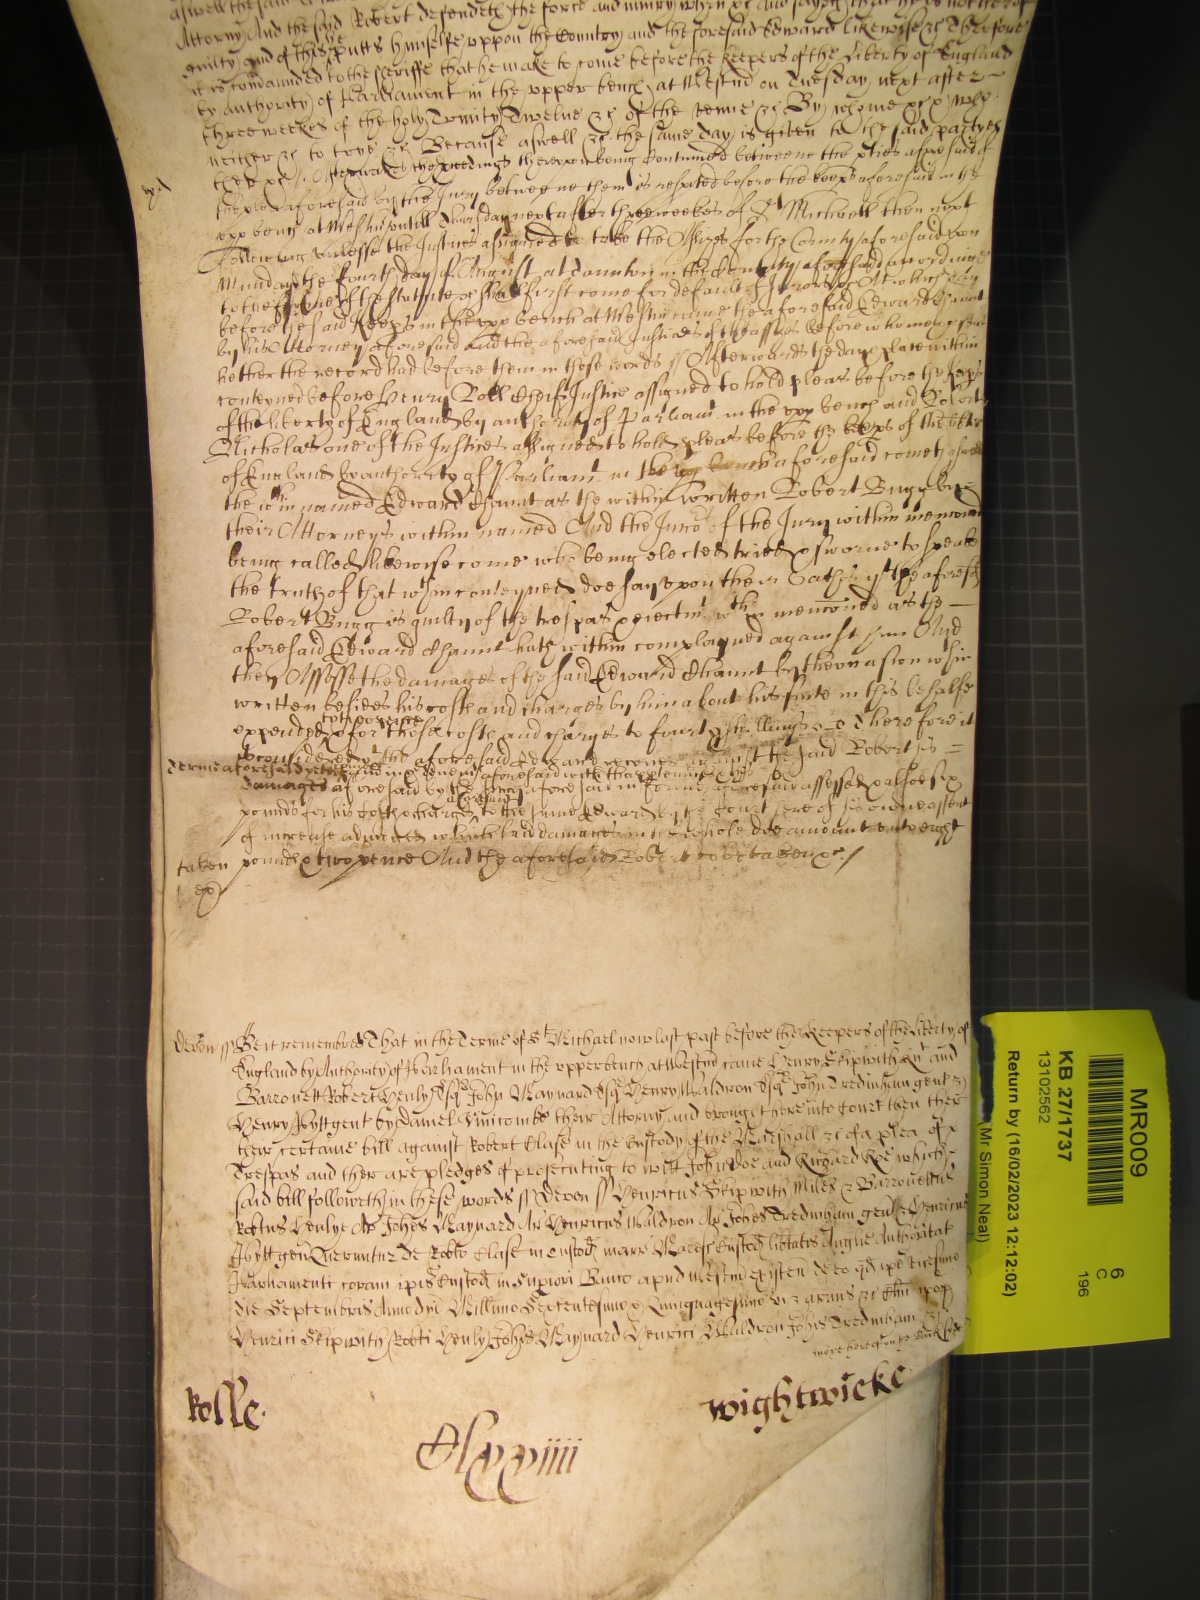 Attorny And the said Robert defendeth the force and iniury when &c And sayeth that he is not thereof
guilty and of this he putts himselfe uppon the Country and the foresaid Edward likewise &c Therefore
it is comanded to the sheriffe that he make to come before the keepers of the Liberty of England
by authority of Parliament in the upper bench at Westm on Tuesday next after
three weekes of the holy Trinity Twelve &c of the venue &c By whome &c who
neither &c to trye &c Because aswell &c the same day is given to the said partyes
there &c Afterwards the proceedings thereupon being continued betweene the pties aforesaid of
the plea aforesaid by the Jury betweene them is respited before the keeps aforesaid in the
upp bench at Westm untill Thursday next after three weekes of St Michaell then next
following unlesse the Justices assigned to take the Assizes for the County aforesaid upon
Munday the fourth day of August at Taunton in the County aforesaid according
to the forme of the statute &c shall first come for default of Jurors &c At which day
before the said keeps in the upp bench at Westm came the aforesaid Edward Chaunt
by his Attorney aforesaid And the aforesaid Justices of thassizes before whome &c sent
hether the record had before them in these words // Afterwards the day & place within
conteyned before Henry Rolle Cheife Justice assigned to hold pleas before the keeps
of the liberty of England by authority of Parliam in the upp bench and Robert
Nicholas one of the Justices assigned to hold pleas before the keeps of the liberty
of England by authority of Parliam in the upp bench aforesaid cometh aswell
the wthin named Edward Chaunt as the within written Robert Bugg by
their Attorneys within named And the Juro's of the Jury within menconed
being called likewise come who being elected tried & sworne to speake
the truth of that wthin conteyned doe say upon their Oathes yt the aforesaid
Robert Bugg is guilty of the trespas & eiectmt wthin menconed as the
aforesaid Edward Chaunt hath within complayned against him And
they Assesse the damages of the said Edward Chaunt by the occasion wthin
written besides his costs and charges by him about his suite in this behalfe
expended to two pence & for those costs and charges to fourty shillings Therefore it
is considered yt the aforesaid Edward recover against the said Robert his
terme aforesaid yet to come in the tenemts aforesaid with the appurtenances & his
damages aforesaid by the Jury aforesaid in forme aforesaid assessed & alsoe six
pounds for his costs & charges aforesaid to the same Edward by the Court here of his owne assent
of increase adiudged which said damages in the whole doe amount unto eight
taken pounds & two pence And the aforesaid Robert to be taken &c /
Devon // Be it remembred That in the Terme of St Michael now last past before the Keepers of the liberty of
England by Authority of Parliament in the upper bench at Westm came Henry Skipwith Knt and
Barronett Robert Henly Esqr John Maynard Esqr Henry Waldron Esqr John Tredinham gent &
Henry Hytt gent by Daniel Vinicombe their Attorny and brought here into Court then there
their certaine bill against Robert Clase in the Custody of the Marshall &c of a plea of
Trespas and ther are pledges of prosecuting to witt John Doe and Richard Roe which
said bill followeth in these words // Devon // Henricus Skipwith Miles & Barronettus
Robtus Henlye Ar Johes Maynard Ar Henricus Waldron Ar Johes Tredinham gen & Henricus
Hytt gen Queruntur de Robto Clase in Custod marr Maresc Custod libtatis Anglie Authoritat
Parliamenti coram ipis Custod in Supiori Banco apud Westm existen de eo qd ipe tricesimo
die Septembris Anno dni Millimo Sexcentesimo & Quinquagesimo vi & armis &c
Henrici Skipwith Robti Henly Johis Maynard Henrici Waldron Johis Tredinham &
more hereof on ye back side
Rolle.
Wightwicke
Clxxiiii
MR009
KB 27/1737
13102562
Return by (16/02/2023 12:12:02)
(Mr Simon Neal)
6
C
196